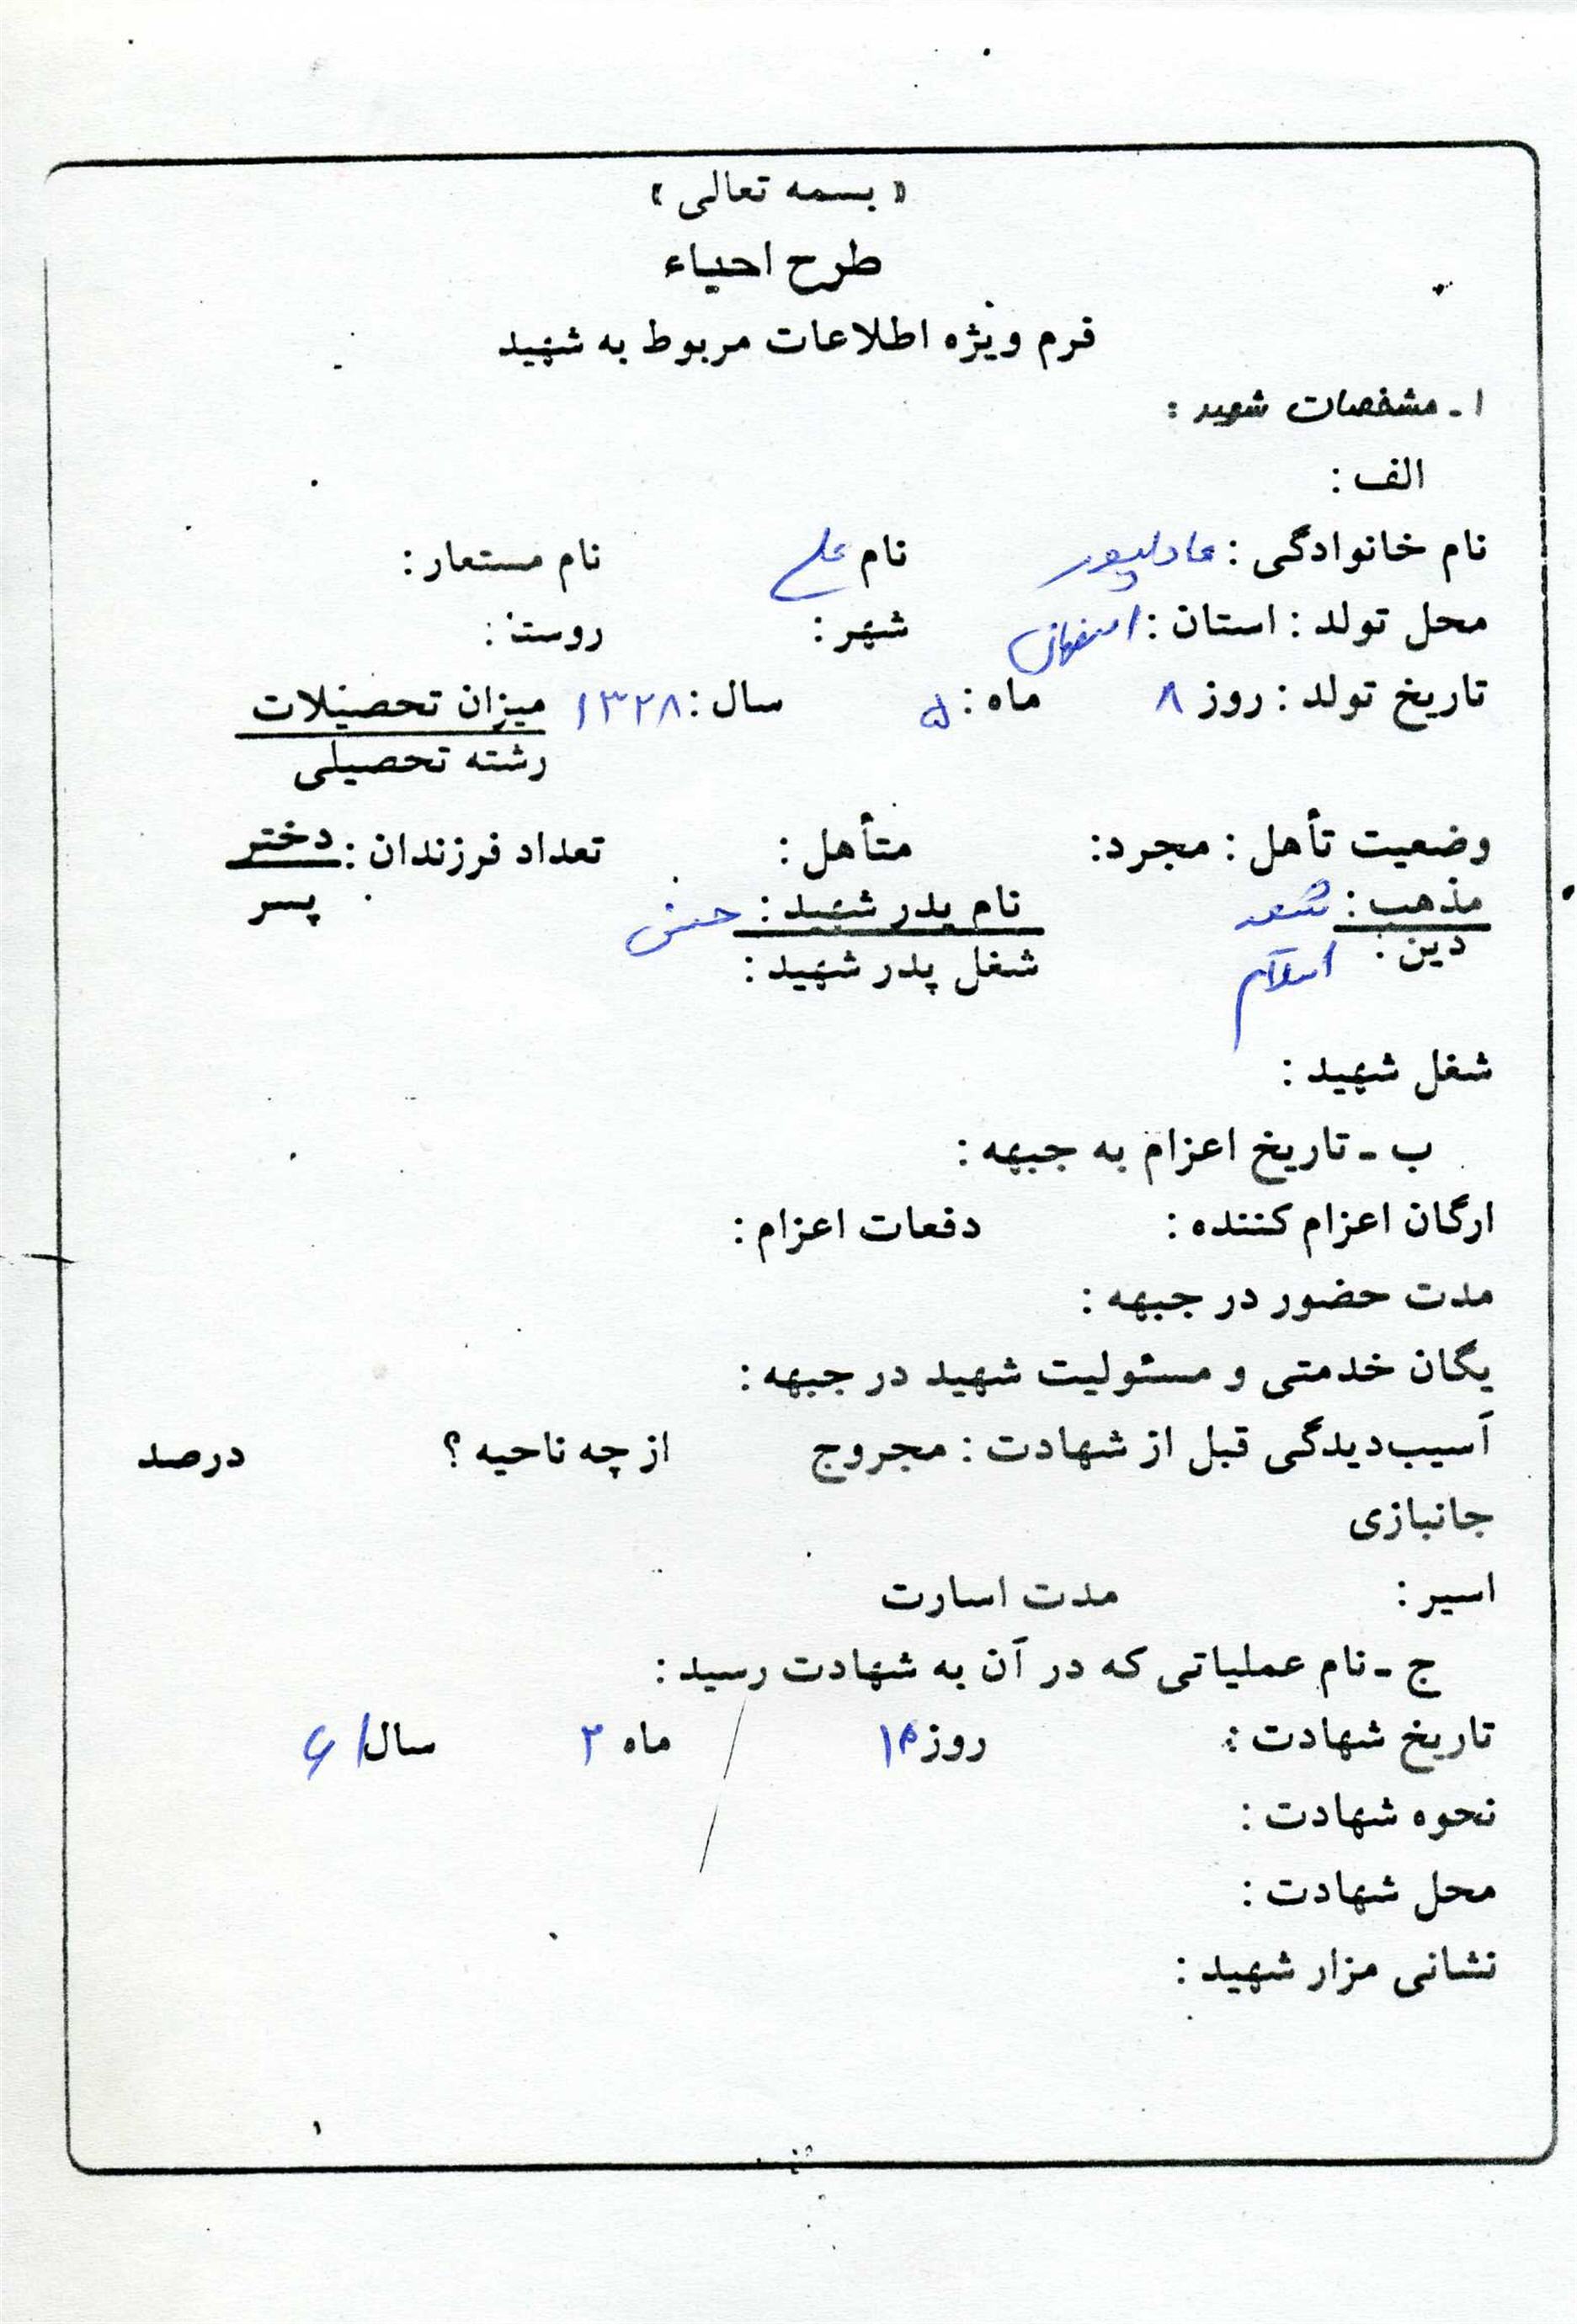 « بسمه تعالی »
طرح احیاء
فرم ویژه اطلاعات مربوط به شهید
۱ ـ مشخصات شهید :
الف :
نام خانوادگی : عادلپور نام علی نام مستعار :
محل تولد : استان : اصفهان شهر : روستا :
تاریخ تولد : روز ۸ ماه : ۵ سال : ۱۳۲۸ میزان تحصیلات
رشته تحصیلی
وضعیت تأهل : مجرد: متأهل : تعداد فرزندان : دختر
مذهب : شیعه نام پدر شهید : حسن پسر
دین : اسلام شغل پدر شهید :
شغل شهید :
ب ـ تاریخ اعزام به جبهه :
ارگان اعزام کننده : دفعات اعزام :
مدت حضور در جبهه :
یگان خدمتی و مسئولیت شهید در جبهه :
آسیب‌دیدگی قبل از شهادت : مجروح از چه ناحیه ؟ درصد
جانبازی
اسیر : مدت اسارت
ج ـ نام عملیاتی که در آن به شهادت رسید :
تاریخ شهادت : روز ماه ۲ سال ۶۱
نحوه شهادت :
محل شهادت :
نشانی مزار شهید :
۱